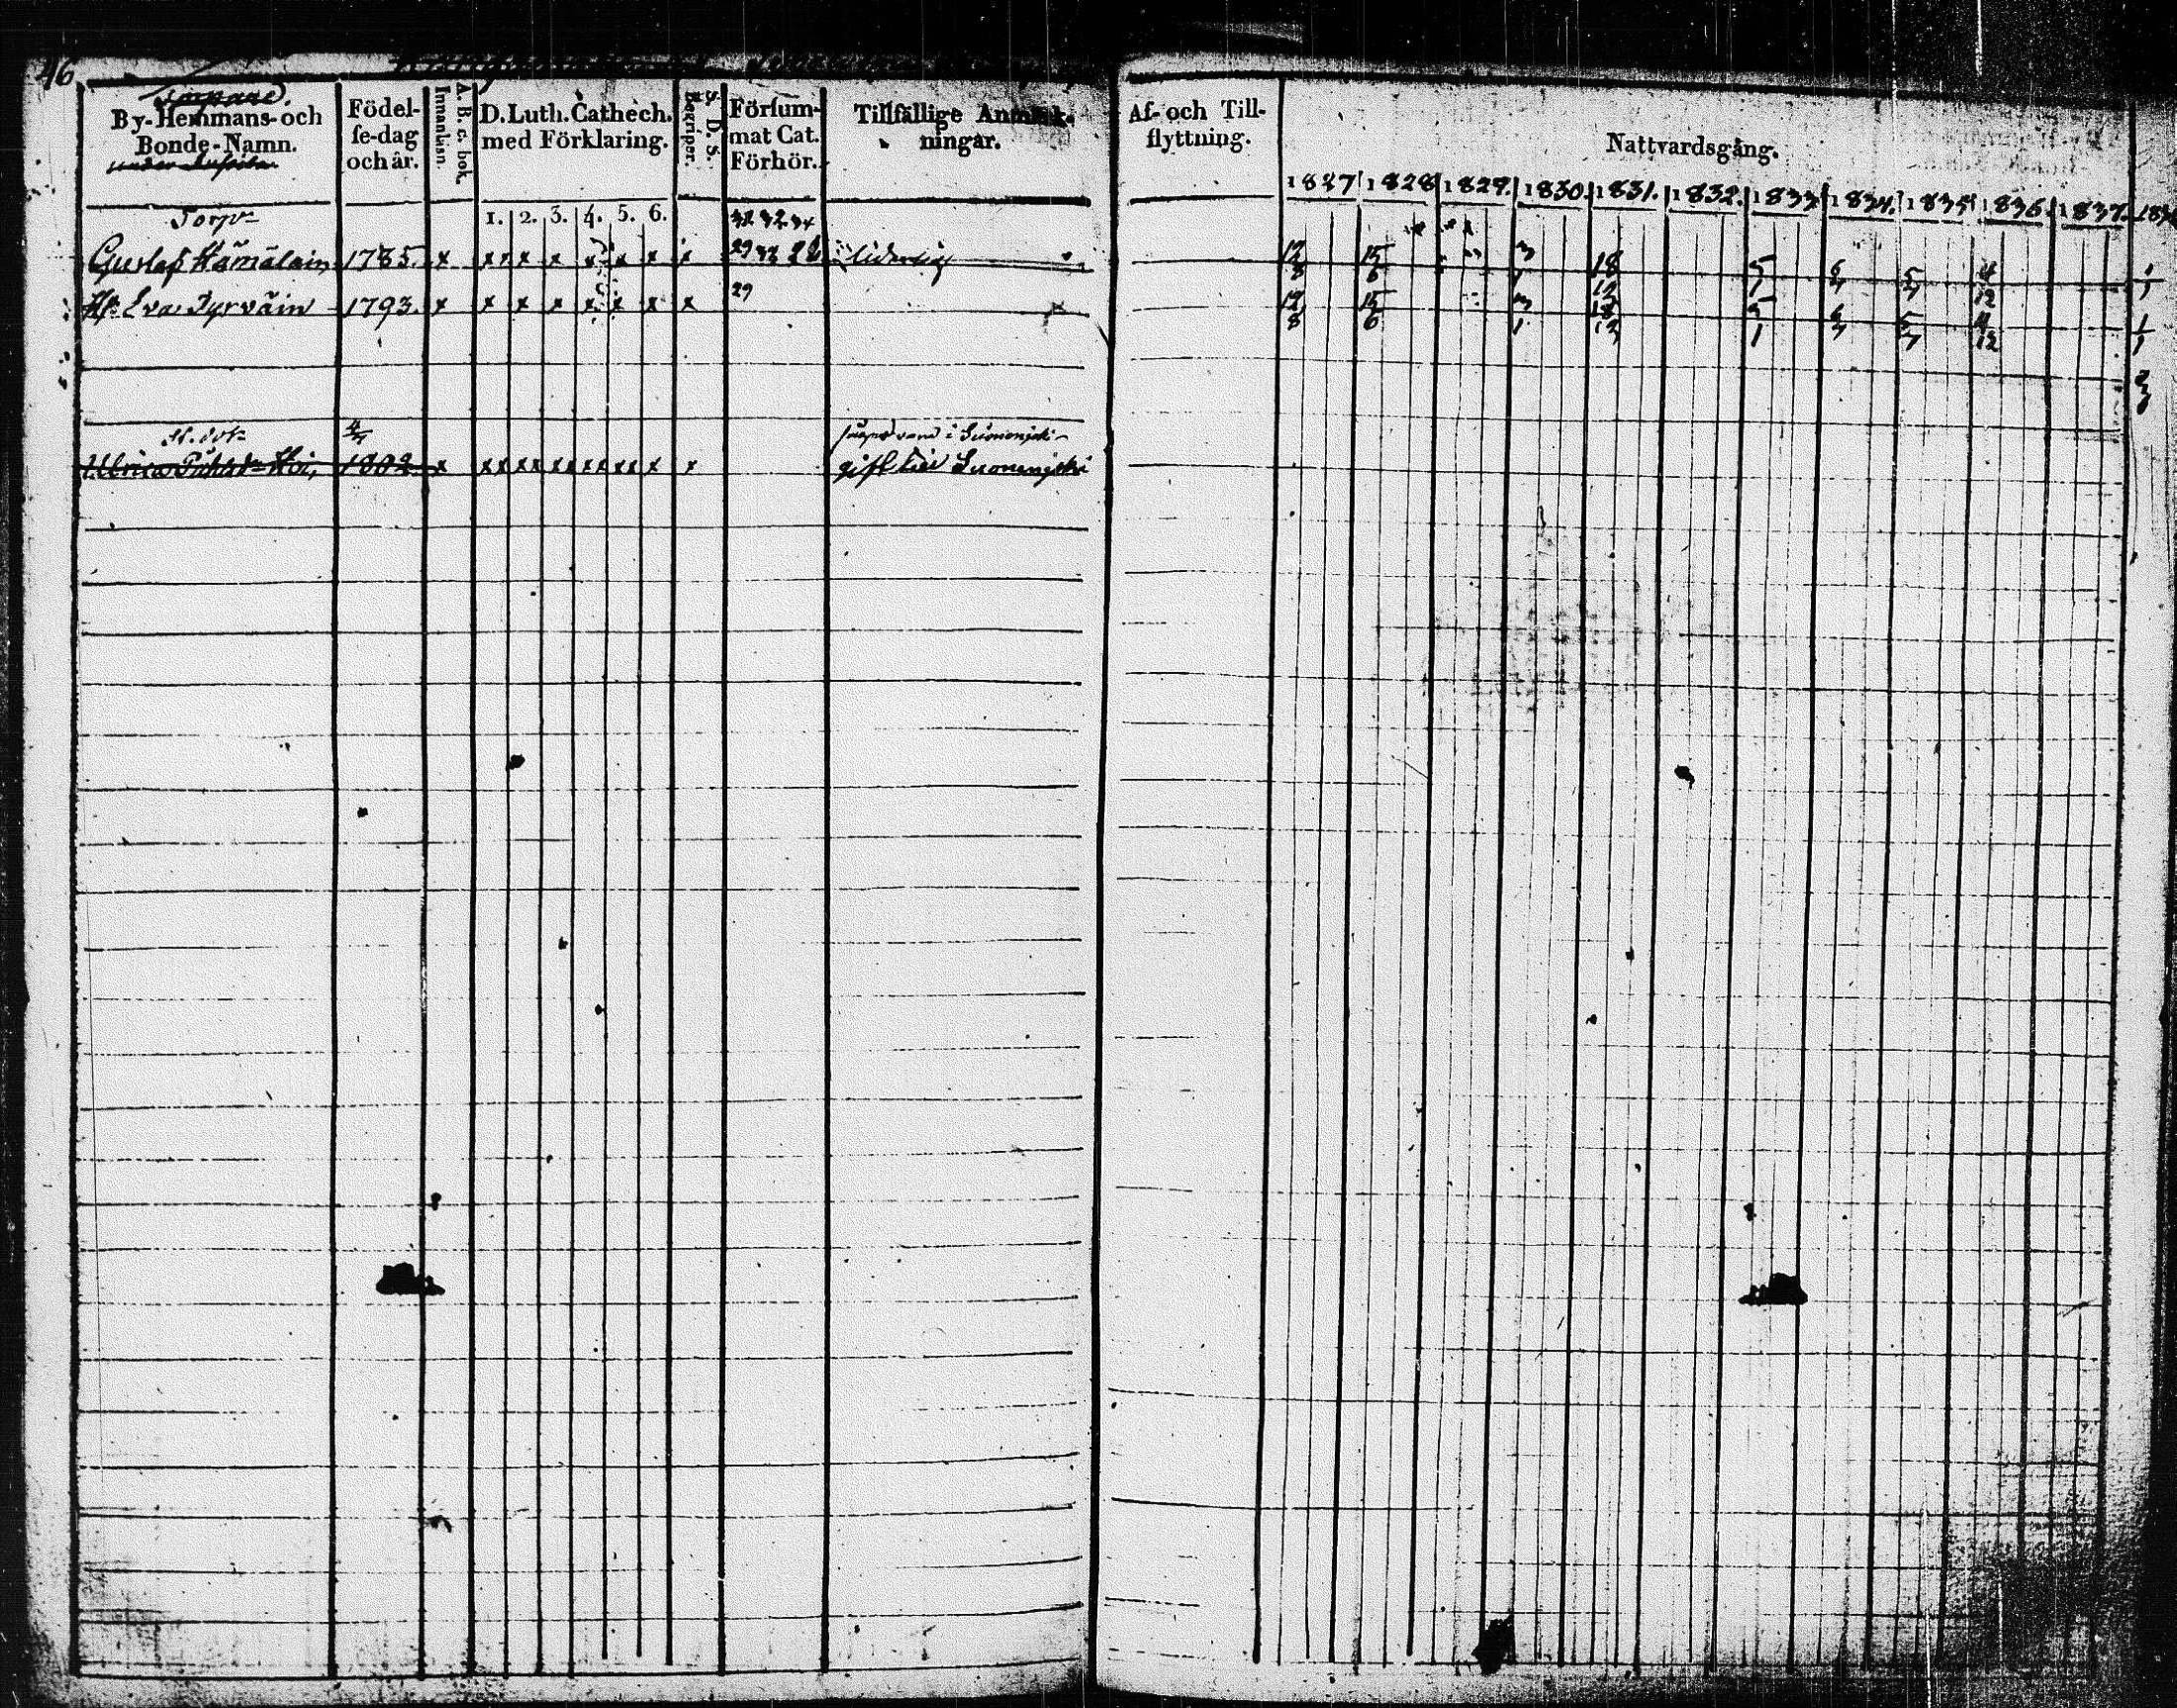 46
By-Hemmans-och
Bonde-Namn.
Födel-
se-dag
och år.
A. B. c. bok.
Innanläsn.
D. Luth. Cathech.
med Förklaring.
1. 2. 3. 4. 5. 6.
Begriper.
Försum-
mat Cat.
Förhör.
Tillfällige Anmärk-
ningar.
Af- och Till-
flyttning.
Nattvardsgång.
1827 1828 1829. 1830. 1831. 1832. 1833 1834. 1835 1836. 1837.
Torp
32 32 34
Gustaf Hämäläin 1785. x x x x x x x x 29 33 liderlig
12/8 15/6 3/1 18/12 5/1 6/7 5/7 4/12 1/1
H. Eva Tyrväin 1793. x x x x x x x x 29
12/8 15/6 3/1 18/12 5/1 6/7 5/7 4/12 1/1
4/7
i Suonenjoki
Ulrica 1802 x x x x x x x x x x x x x gift till Suonenjoki